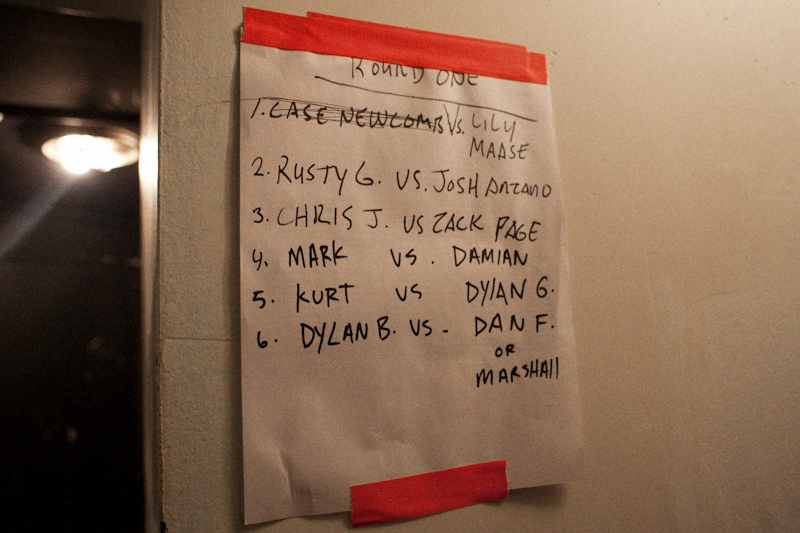 ROUND ONE
1. CASE NEWCOMB VS. LILY
MAASE
2. RUSTY G. VS. JOSH ANZANO
3. CHRIS J. VS ZACK PAGE
4. MARK VS. DAMIAN
5. KURT VS DYLAN G.
6. DYLAN B. VS - DAN F.
OR
MARSHAll